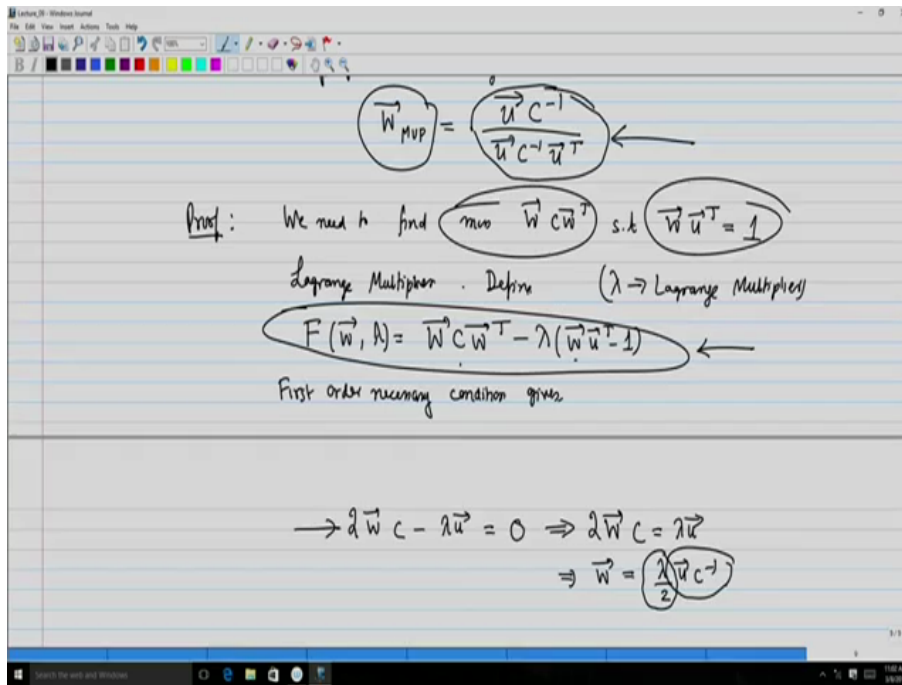 Lecture_09 - Windows Journal
File Edit View Insert Actions Tools Help
100%
B I
W⃗ MVP = u⃗ C⁻¹ / u⃗ C⁻¹ u⃗ᵀ
Proof : We need to find min W⃗ C W⃗ᵀ s.t W⃗ u⃗ᵀ = 1
Lagrange Multiplier . Define (λ → Lagrange Multiplier)
F (W⃗, λ) = W⃗ C W⃗ᵀ − λ (W⃗ u⃗ᵀ − 1)
First order necessary condition gives
→ 2 W⃗ C − λ u⃗ = 0 ⇒ 2 W⃗ C = λ u⃗
⇒ W⃗ = λ/2 u⃗ C⁻¹
Search the web and Windows